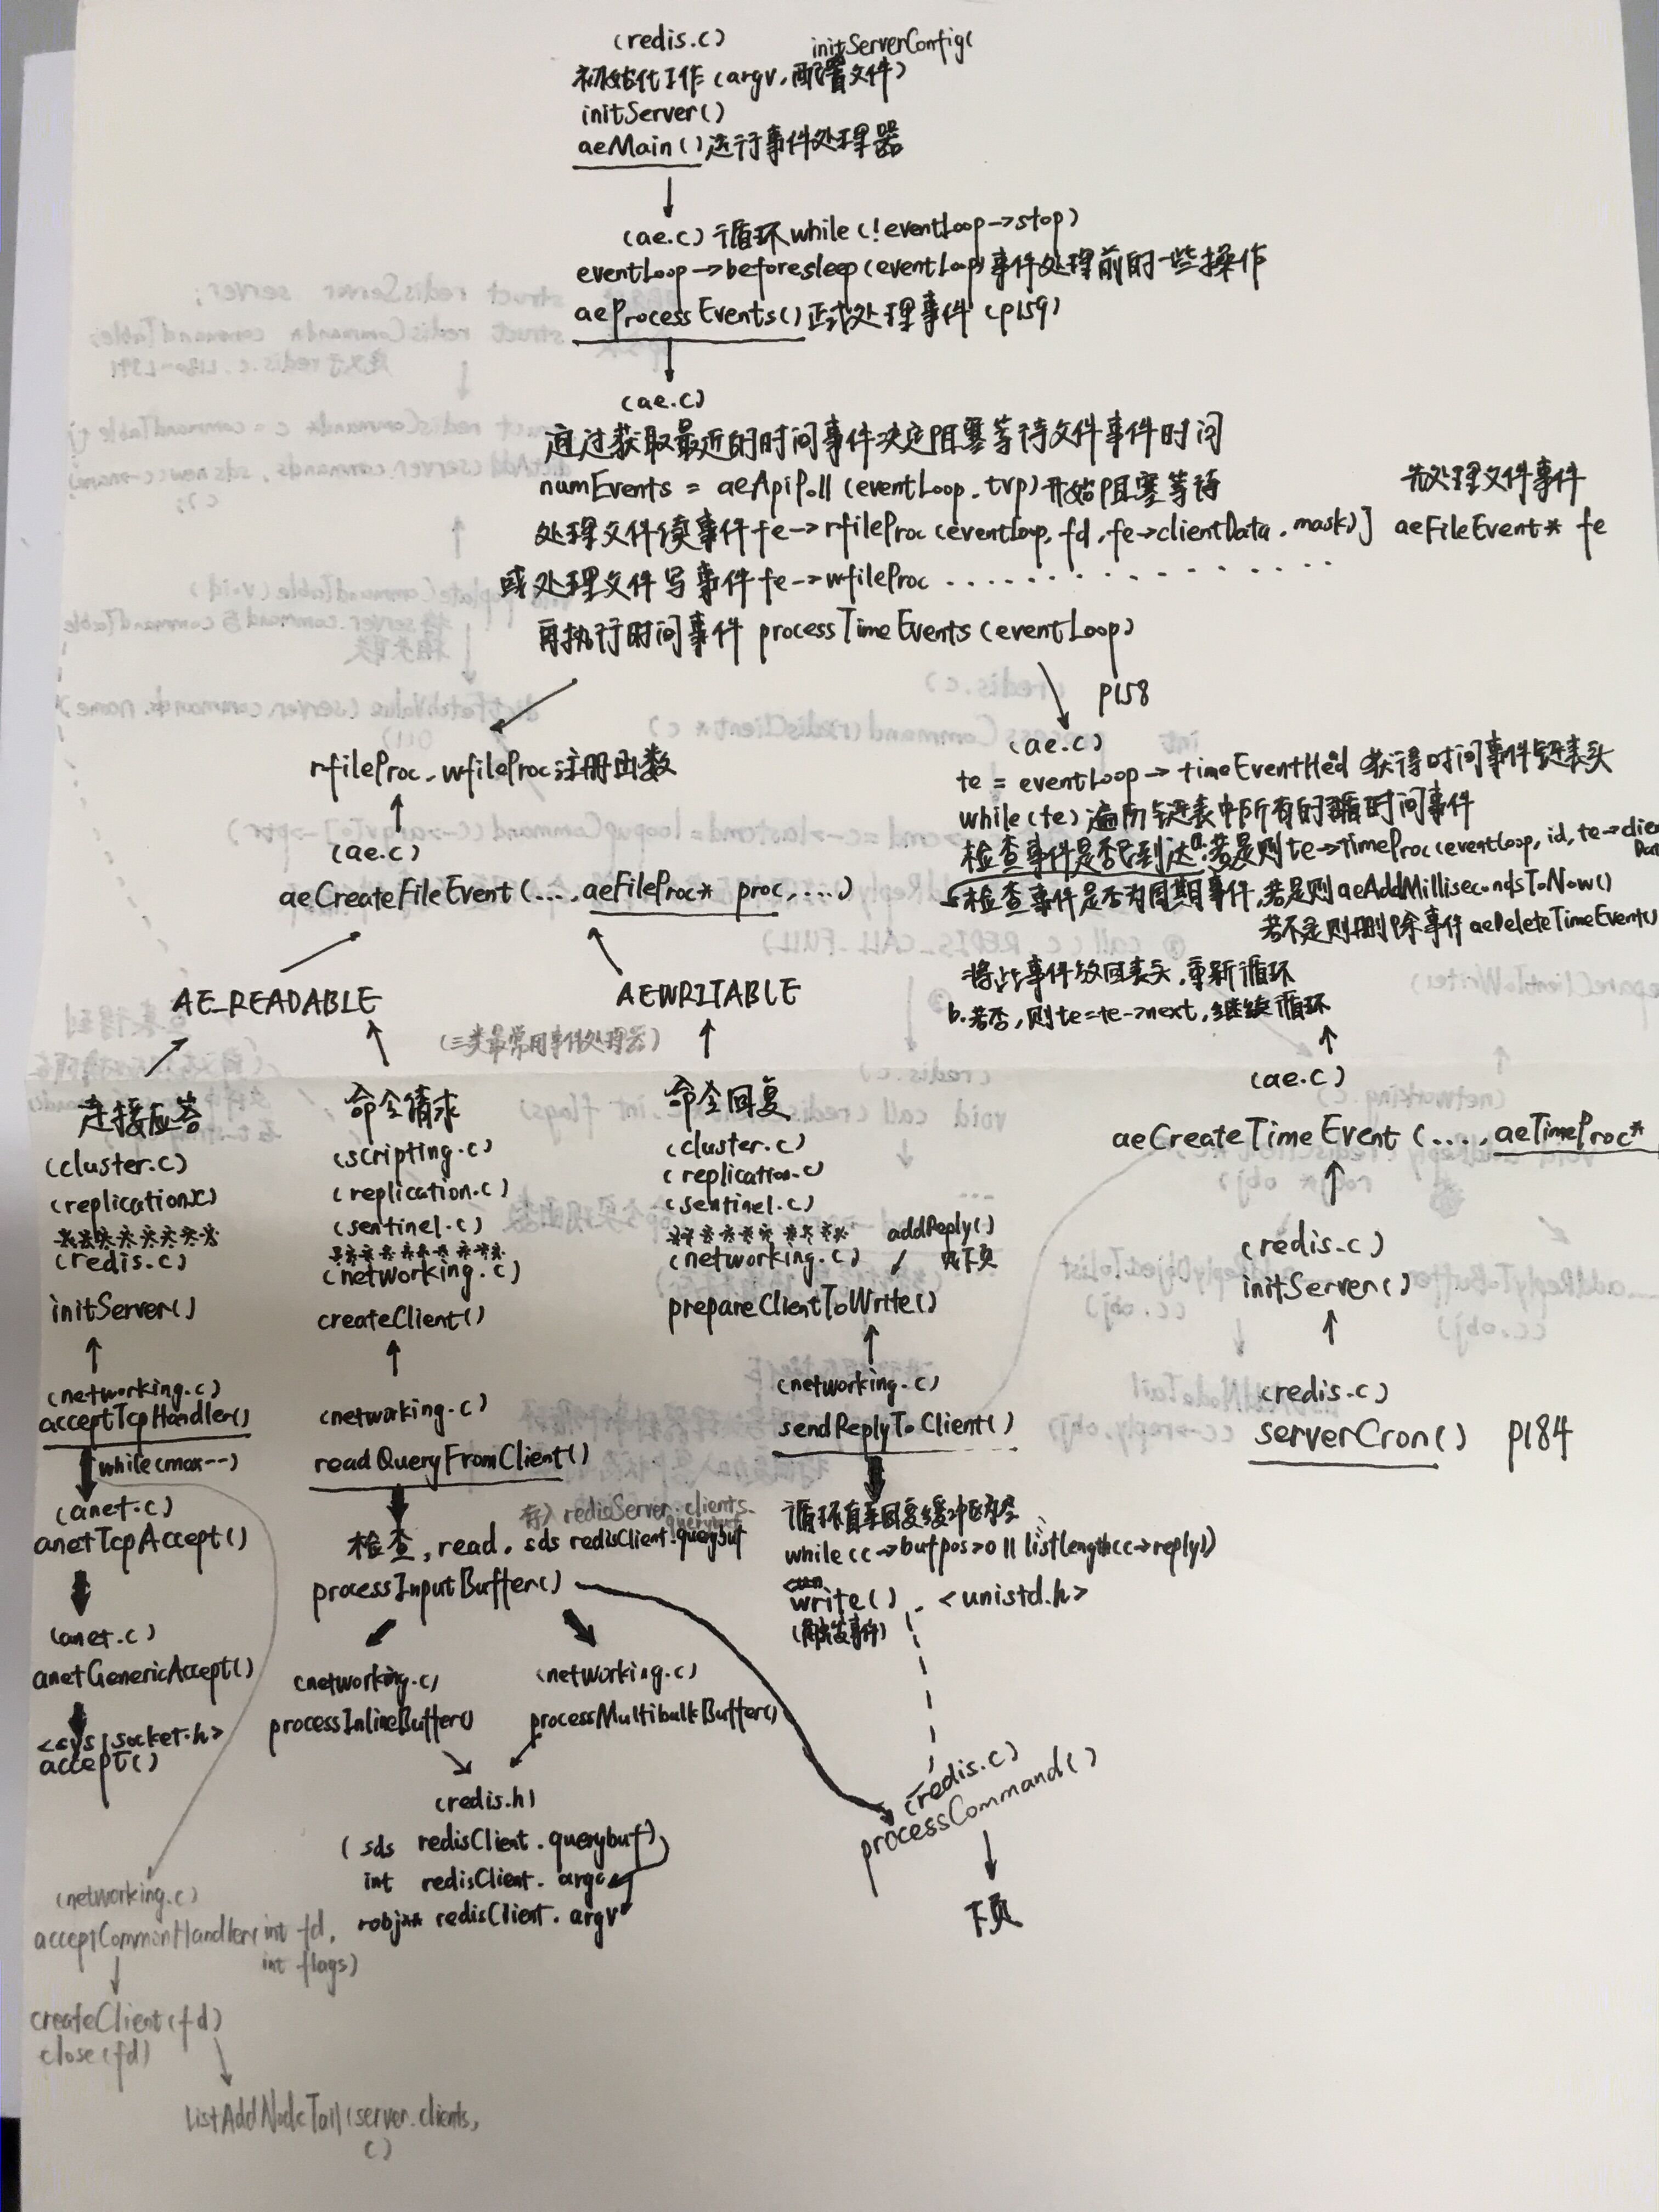 (redis.c)
initServerConfig(
初始化工作(argv,配置文件)
initServer()
aeMain()运行事件处理器
(ae.c)循环while(!eventLoop->stop)
eventLoop->beforesleep(eventLoop)事件处理前的一些操作
aeProcessEvents()正式处理事件(p159)
(ae.c)
通过获取最近的时间事件决定阻塞等待文件事件时间
numEvents = aeApiPoll(eventLoop.tvp)开始阻塞等待
先处理文件事件
处理文件读事件fe->rfileProc(eventLoop,fd,fe->clientData.mask)] aeFileEvent* fe
或处理文件写事件fe->wfileProc ................
再执行时间事件 processTimeEvents(eventLoop)
p158
rfileProc.wfileProc注册函数
(ae.c)
aeCreateFileEvent(...,aeFileProc* proc,...)
(ae.c)
te = eventLoop->timeEventHead 获得时间事件链表头
while(te)遍历链表中所有的时间事件
检查事件是否已到达a.若是则te->timeProc(eventLoop,id,te->clie
Dat
检查事件是否为周期事件,若是则aeAddMillisecondsToNow()
若不是则删除事件aeDeleteTimeEvent()
将此事件放回表头,重新循环
b.若否,则te=te->next,继续循环
AE_READABLE
AEWRITABLE
(三类最常用事件处理器)
连接应答
(cluster.c)
(replication.c)
********
(redis.c)
initServer()
(networking.c)
acceptTcpHandler()
while(max--)
(anet.c)
anetTcpAccept()
(anet.c)
anetGenericAccept()
<sys/socket.h>
accept()
(networking.c)
acceptCommonHandler(int fd,
int flags)
createClient(fd)
close(fd)
ListAddNodeTail(server.clients,
c)
命令请求
(scripting.c)
(replication.c)
(sentinel.c)
********
(networking.c)
createClient()
(networking.c)
readQueryFromClient()
存入redisServer.clients.
querybuf
检查,read.sds redisClient.querybuf
processInputBuffer()
(networking.c)
processInlineBuffer()
(networking.c)
processMultibulkBuffer()
(redis.h)
(sds redisClient.querybuf)
int redisClient.argc
robj** redisClient.argv
命令回复
(cluster.c)
(replication.c)
(sentinel.c)
********
(networking.c)
addReply()
见下页
prepareClientToWrite()
(networking.c)
sendReplyToClient()
循环直至回复缓冲区为空
while(c->bufpos>0||listlength(c->reply))
write() <unistd.h>
(触发事件)
(redis.c)
processCommand()
下页
(ae.c)
aeCreateTimeEvent(....,aeTimeProc*
(redis.c)
initServer()
(redis.c)
serverCron() p184